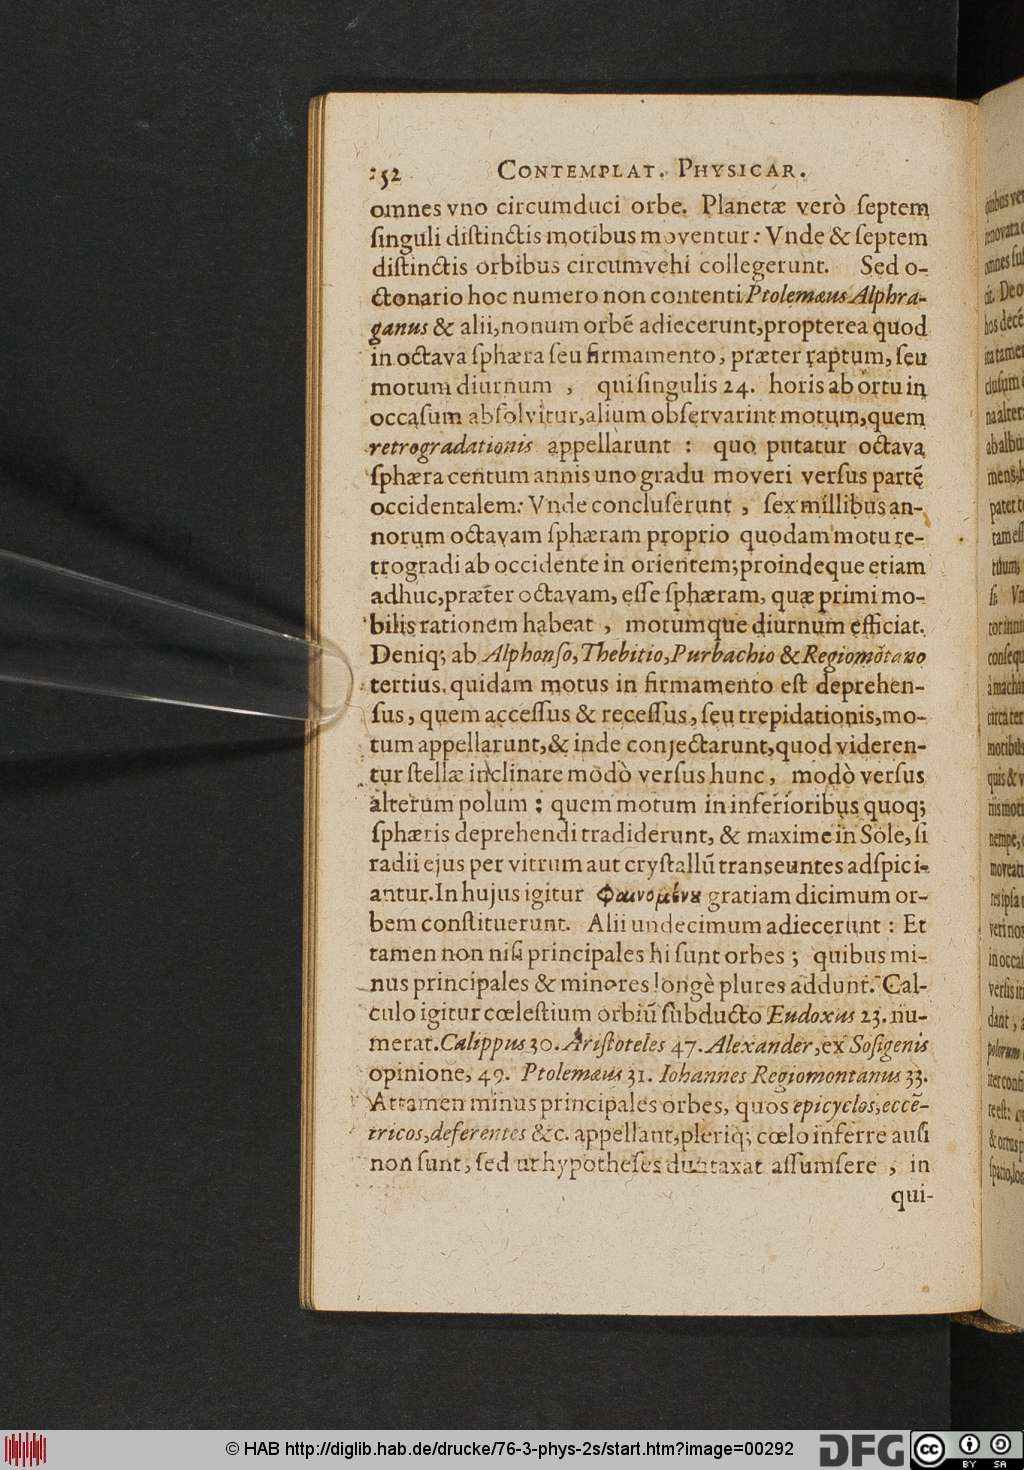 252 CONTEMPLAT. PHYSICAR.
omnes vno circumduci orbe. Planetæ verò ſeptem
ſinguli diſtinctis motibus moventur: Vnde & ſeptem
diſtinctis orbibus circumvehi collegerunt. Sed o-
ctonario hoc numero non contenti Ptolemæus Alphra-
ganus & alii, nonum orbẽ adiecerunt, propterea quod
in octava ſphæra ſeu firmamento, præter raptum, ſeu
motum diurnum , qui ſingulis 24. horis ab ortu in
occaſum abſolvitur, alium obſervarint motum, quem
retrogradationis appellarunt : quo putatur octava
ſphæra centum annis uno gradu moveri verſus partẽ
occidentalem: Vnde concluſerunt , ſex millibus an-
norum octavam ſphæram proprio quodam motu re-
trogradi ab occidente in orientem; proindeque etiam
adhuc, præter octavam, eſſe ſphæram, quæ primi mo-
bilis rationem habeat , motumque diurnum efficiat.
Deniq; ab Alphonſo, Thebitio, Purbachio & Regiomõtano
tertius quidam motus in firmamento eſt deprehen-
ſus, quem acceſſus & receſſus, ſeu trepidationis, mo-
tum appellarunt, & inde conjectarunt, quod videren-
tur ſtellæ inclinare modò verſus hunc, modò verſus
alterum polum : quem motum in inferioribus quoq;
ſphæris deprehendi tradiderunt, & maxime in Sole, ſi
radii ejus per vitrum aut cryſtallũ transeuntes adſpici-
antur. In hujus igitur Φαινομένȣ gratiam dicimum or-
bem conſtituerunt. Alii undecimum adiecerunt : Et
tamen non niſi principales hi ſunt orbes ; quibus mi-
nus principales & minores longè plures addunt. Cal-
culo igitur cœleſtium orbiũ ſubducto Eudoxus 23. nu-
merat. Calippus 30. Ariſtoteles 47. Alexander, ex Soſigenis
opinione, 49. Ptolemæus 31. Iohannes Regiomontanus 33.
Attamen minus principales orbes, quos epicyclos, eccẽ-
tricos, deferentes &c. appellant, pleriq; cœlo inferre auſi
non ſunt, ſed ut hypotheſes duntaxat aſſumſere , in
qui-
© HAB http://diglib.hab.de/drucke/76-3-phys-2s/start.htm?image=00292
DFG
CC BY SA